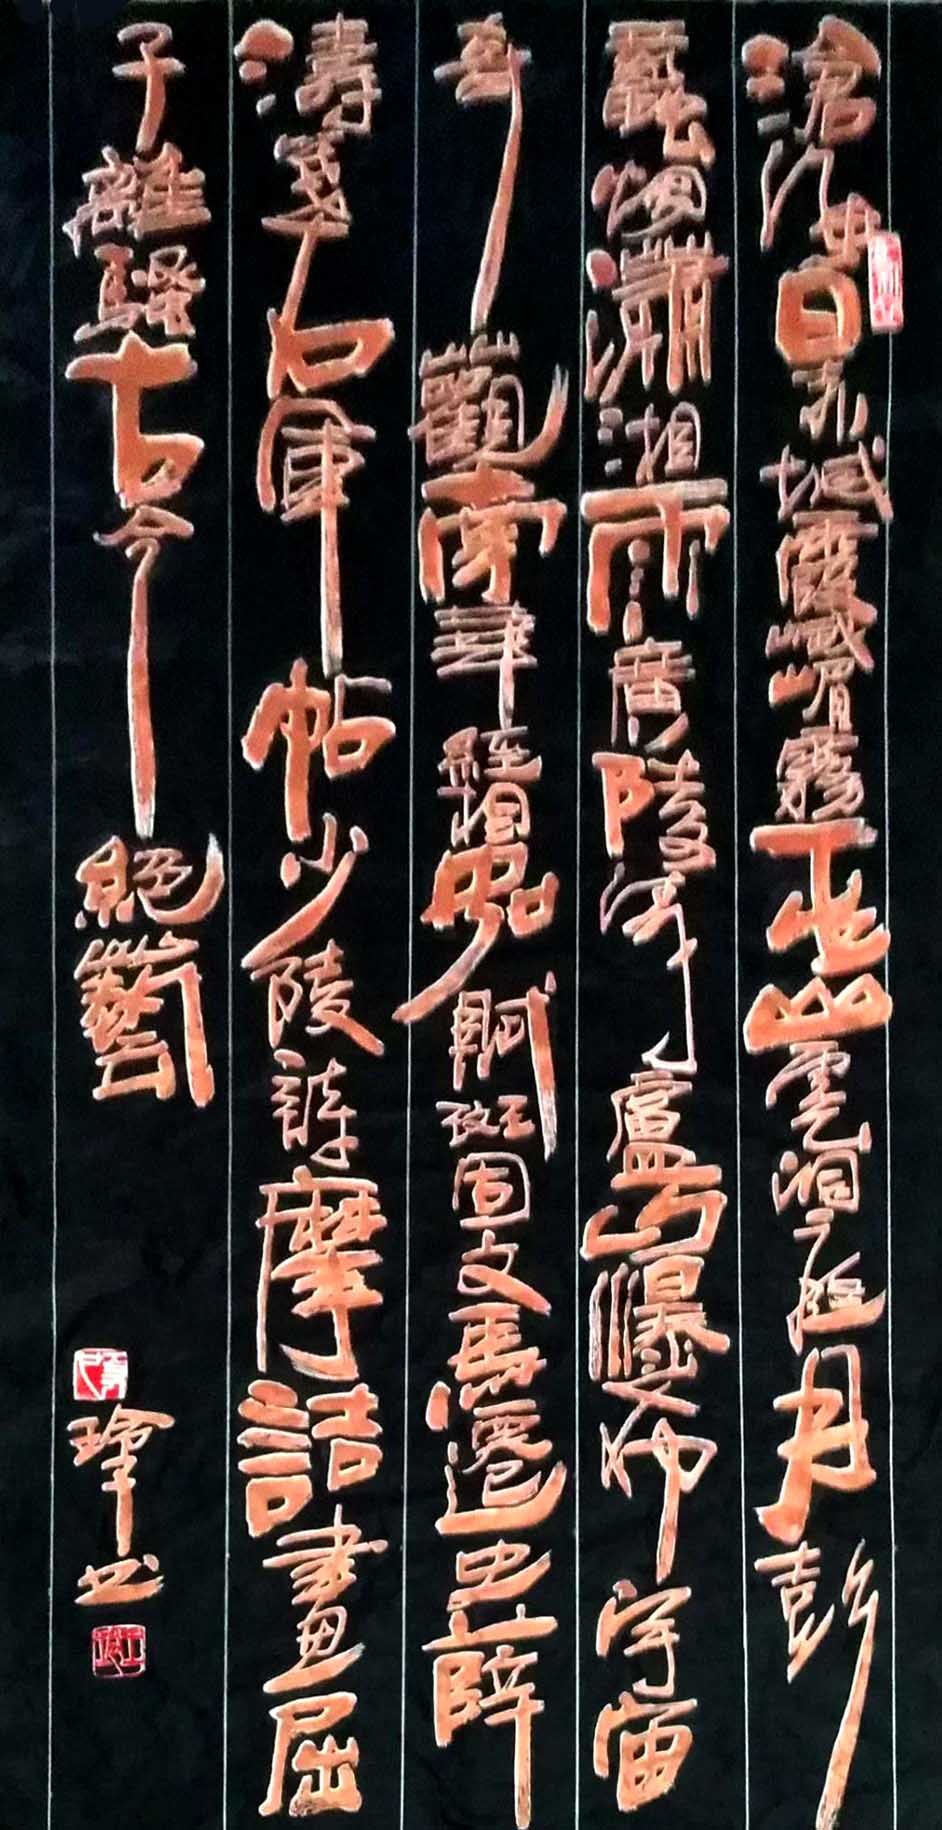 滄海日赤城霞峨嵋霧巫山雲洞庭月彭
蠡煙瀟湘雨廣陵濤廬山瀑布宇宙
奇觀南華經相如賦班固文馬遷史薛
濤箋右軍帖少陵詩摩詰畫屈
子離騷古今絕藝
书